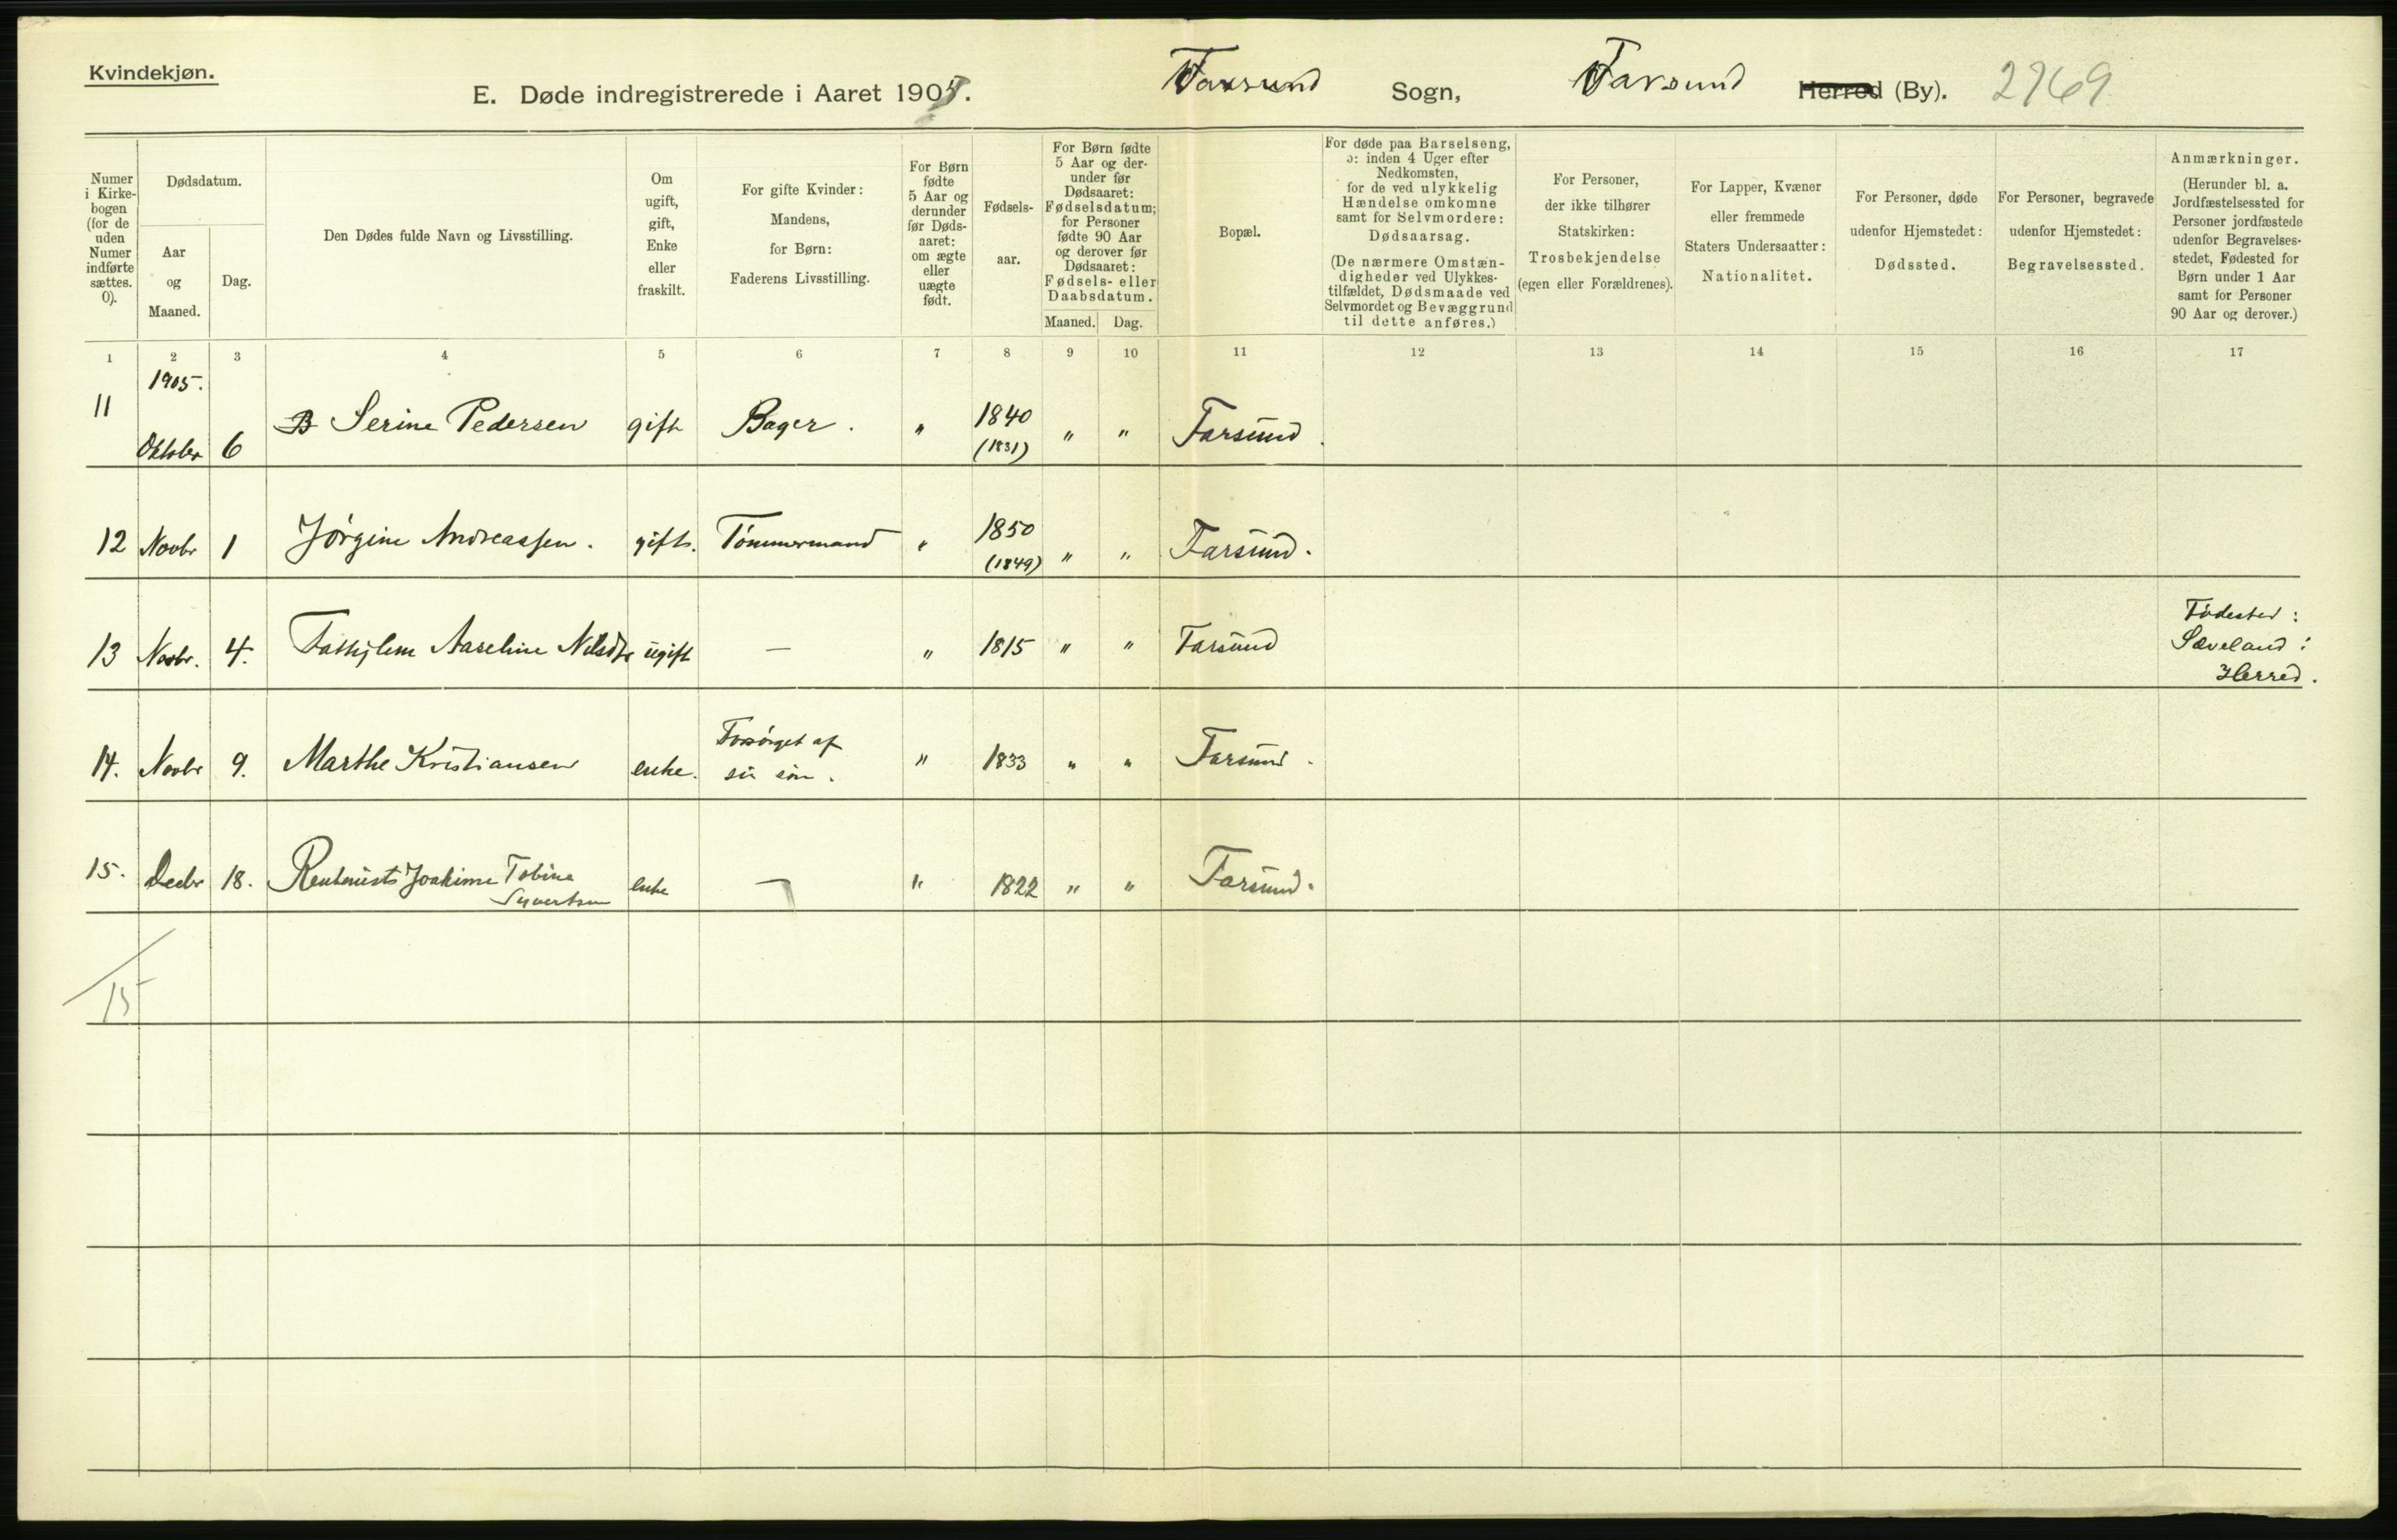 Kvindekjøn.
E. Døde indregistrerede i Aaret 1905.
Farsund Sogn, Farsund Herred (By). 2769
Numer i Kirkebogen (for de uden Numer indførte sættes. 0).
Dødsdatum.
Aar og Maaned.
Dag.
Den Dødes fulde Navn og Livsstilling.
Om ugift, gift, Enke eller fraskilt.
For gifte Kvinder: Mandens, for Børn: Faderens Livsstilling.
For Børn fødte 5 Aar og derunder før Dødsaaret: om ægte eller uægte født.
Fødselsaar.
For Børn fødte 5 Aar og derunder før Dødsaaret: Fødselsdatum; for Personer fødte 90 Aar og derover før Dødsaaret: Fødsels- eller Daabsdatum.
Maaned. Dag.
Bopæl.
For døde paa Barselseng, ɔ: inden 4 Uger efter Nedkomsten, for de ved ulykkelig Hændelse omkomne samt for Selvmordere: Dødsaarsag.
(De nærmere Omstændigheder ved Ulykkestilfældet, Dødsmaade ved Selvmordet og Bevæggrund til dette anføres.)
For Personer, der ikke tilhører Statskirken: Trosbekjendelse (egen eller Forældrenes).
For Lapper, Kvæner eller fremmede Staters Undersaatter: Nationalitet.
For Personer, døde udenfor Hjemstedet: Dødssted.
For Personer, begravede udenfor Hjemstedet: Begravelsessted.
Anmærkninger.
(Herunder bl. a. Jordfæstelsessted for Personer jordfæstede udenfor Begravelsesstedet, Fødested for Børn under 1 Aar samt for Personer 90 Aar og derover.)
1 2 3 4 5 6 7 8 9 10 11 12 13 14 15 16 17
1905.
11 Oktober 6 B Serine Pedersen gift Bager. " 1840 " " Farsund.
(1831)
12 Novbr 1 Jörgine Andreassen. gift. Tömmermand " 1850 " " Farsund.
(1849)
13 Novbr. 4. Aaseline Nilsdtr ugift — " 1815 " " Farsund Födested:
Sæveland i
Herred.
14. Novbr 9. Marthe Kristiansen enke. Forsörget af " 1833 " " Farsund.
sin sön.
15. Decbr 18. Rentenists Joakime Tobine enke — " 1822 " " Farsund.
Syvertsen
15